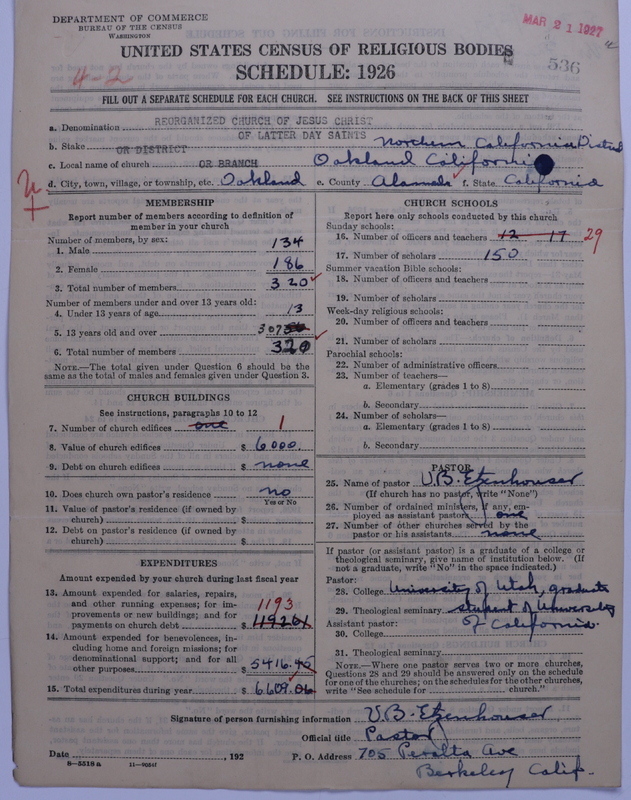 DEPARTMENT OF COMMERCE
BUREAU OF THE CENSUS
WASHINGTON
MAR 21 1927
536
4-2
UNITED STATES CENSUS OF RELIGIOUS BODIES
SCHEDULE: 1926
FILL OUT A SEPARATE SCHEDULE FOR EACH CHURCH. SEE INSTRUCTIONS ON THE BACK OF THIS SHEET
a. Denomination REORGANIZED CHURCH OF JESUS CHRIST
OF LATTER DAY SAINTS
b. Stake OR DISTRICT Northern California District
c. Local name of church OR BRANCH Oakland California
d. City, town, village, or township, etc. Oakland e. County Alameda f. State California
MEMBERSHIP
Report number of members according to definition of
member in your church
Number of members, by sex:
1. Male 134
2. Female 186
3. Total number of members 320
Number of members under and over 13 years old:
4. Under 13 years of age 13
5. 13 years old and over 307
6. Total number of members 320
NOTE.—The total given under Question 6 should be the
same as the total of males and females given under Question 3.
CHURCH BUILDINGS
See instructions, paragraphs 10 to 12
7. Number of church edifices one 1
8. Value of church edifices $ 6000.
9. Debt on church edifices $ none
10. Does church own pastor's residence no
Yes or No
11. Value of pastor's residence (if owned by
church) $
12. Debt on pastor's residence (if owned by
church) $
EXPENDITURES
Amount expended by your church during last fiscal year
13. Amount expended for salaries, repairs,
and other running expenses; for im-
provements or new buildings; and for
payments on church debt $ 1193
14. Amount expended for benevolences, in-
cluding home and foreign missions; for
denominational support; and for all
other purposes $ 5416.45
15. Total expenditures during year $ 6609.06
CHURCH SCHOOLS
Report here only schools conducted by this church
Sunday schools:
16. Number of officers and teachers 12 17 29
17. Number of scholars 150
Summer vacation Bible schools:
18. Number of officers and teachers
19. Number of scholars
Week-day religious schools:
20. Number of officers and teachers
21. Number of scholars
Parochial schools:
22. Number of administrative officers
23. Number of teachers—
a. Elementary (grades 1 to 8)
b. Secondary
24. Number of scholars—
a. Elementary (grades 1 to 8)
b. Secondary
PASTOR
25. Name of pastor V.B. Etzenhouser
(If church has no pastor, write "None")
26. Number of ordained ministers, if any, em-
ployed as assistant pastor one
27. Number of other churches served by the
pastor or his assistants none
If pastor (or assistant pastor) is a graduate of a college or
theological seminary, give name of institution below. (If
not a graduate, write "No" in the space indicated.)
Pastor:
28. College University of Utah, graduate
29. Theological seminary student of University
Assistant pastor: of California.
30. College
31. Theological seminary
NOTE.—Where one pastor serves two or more churches,
Questions 28 and 29 should be answered only on the schedule
for one of the churches; on the schedules for the other churches,
write "See schedule for church."
Signature of person furnishing information V.B. Etzenhouser
Official title Pastor
Date , 192 P. O. Address 705 Peralta Ave
8-5518a
Berkeley Calif.